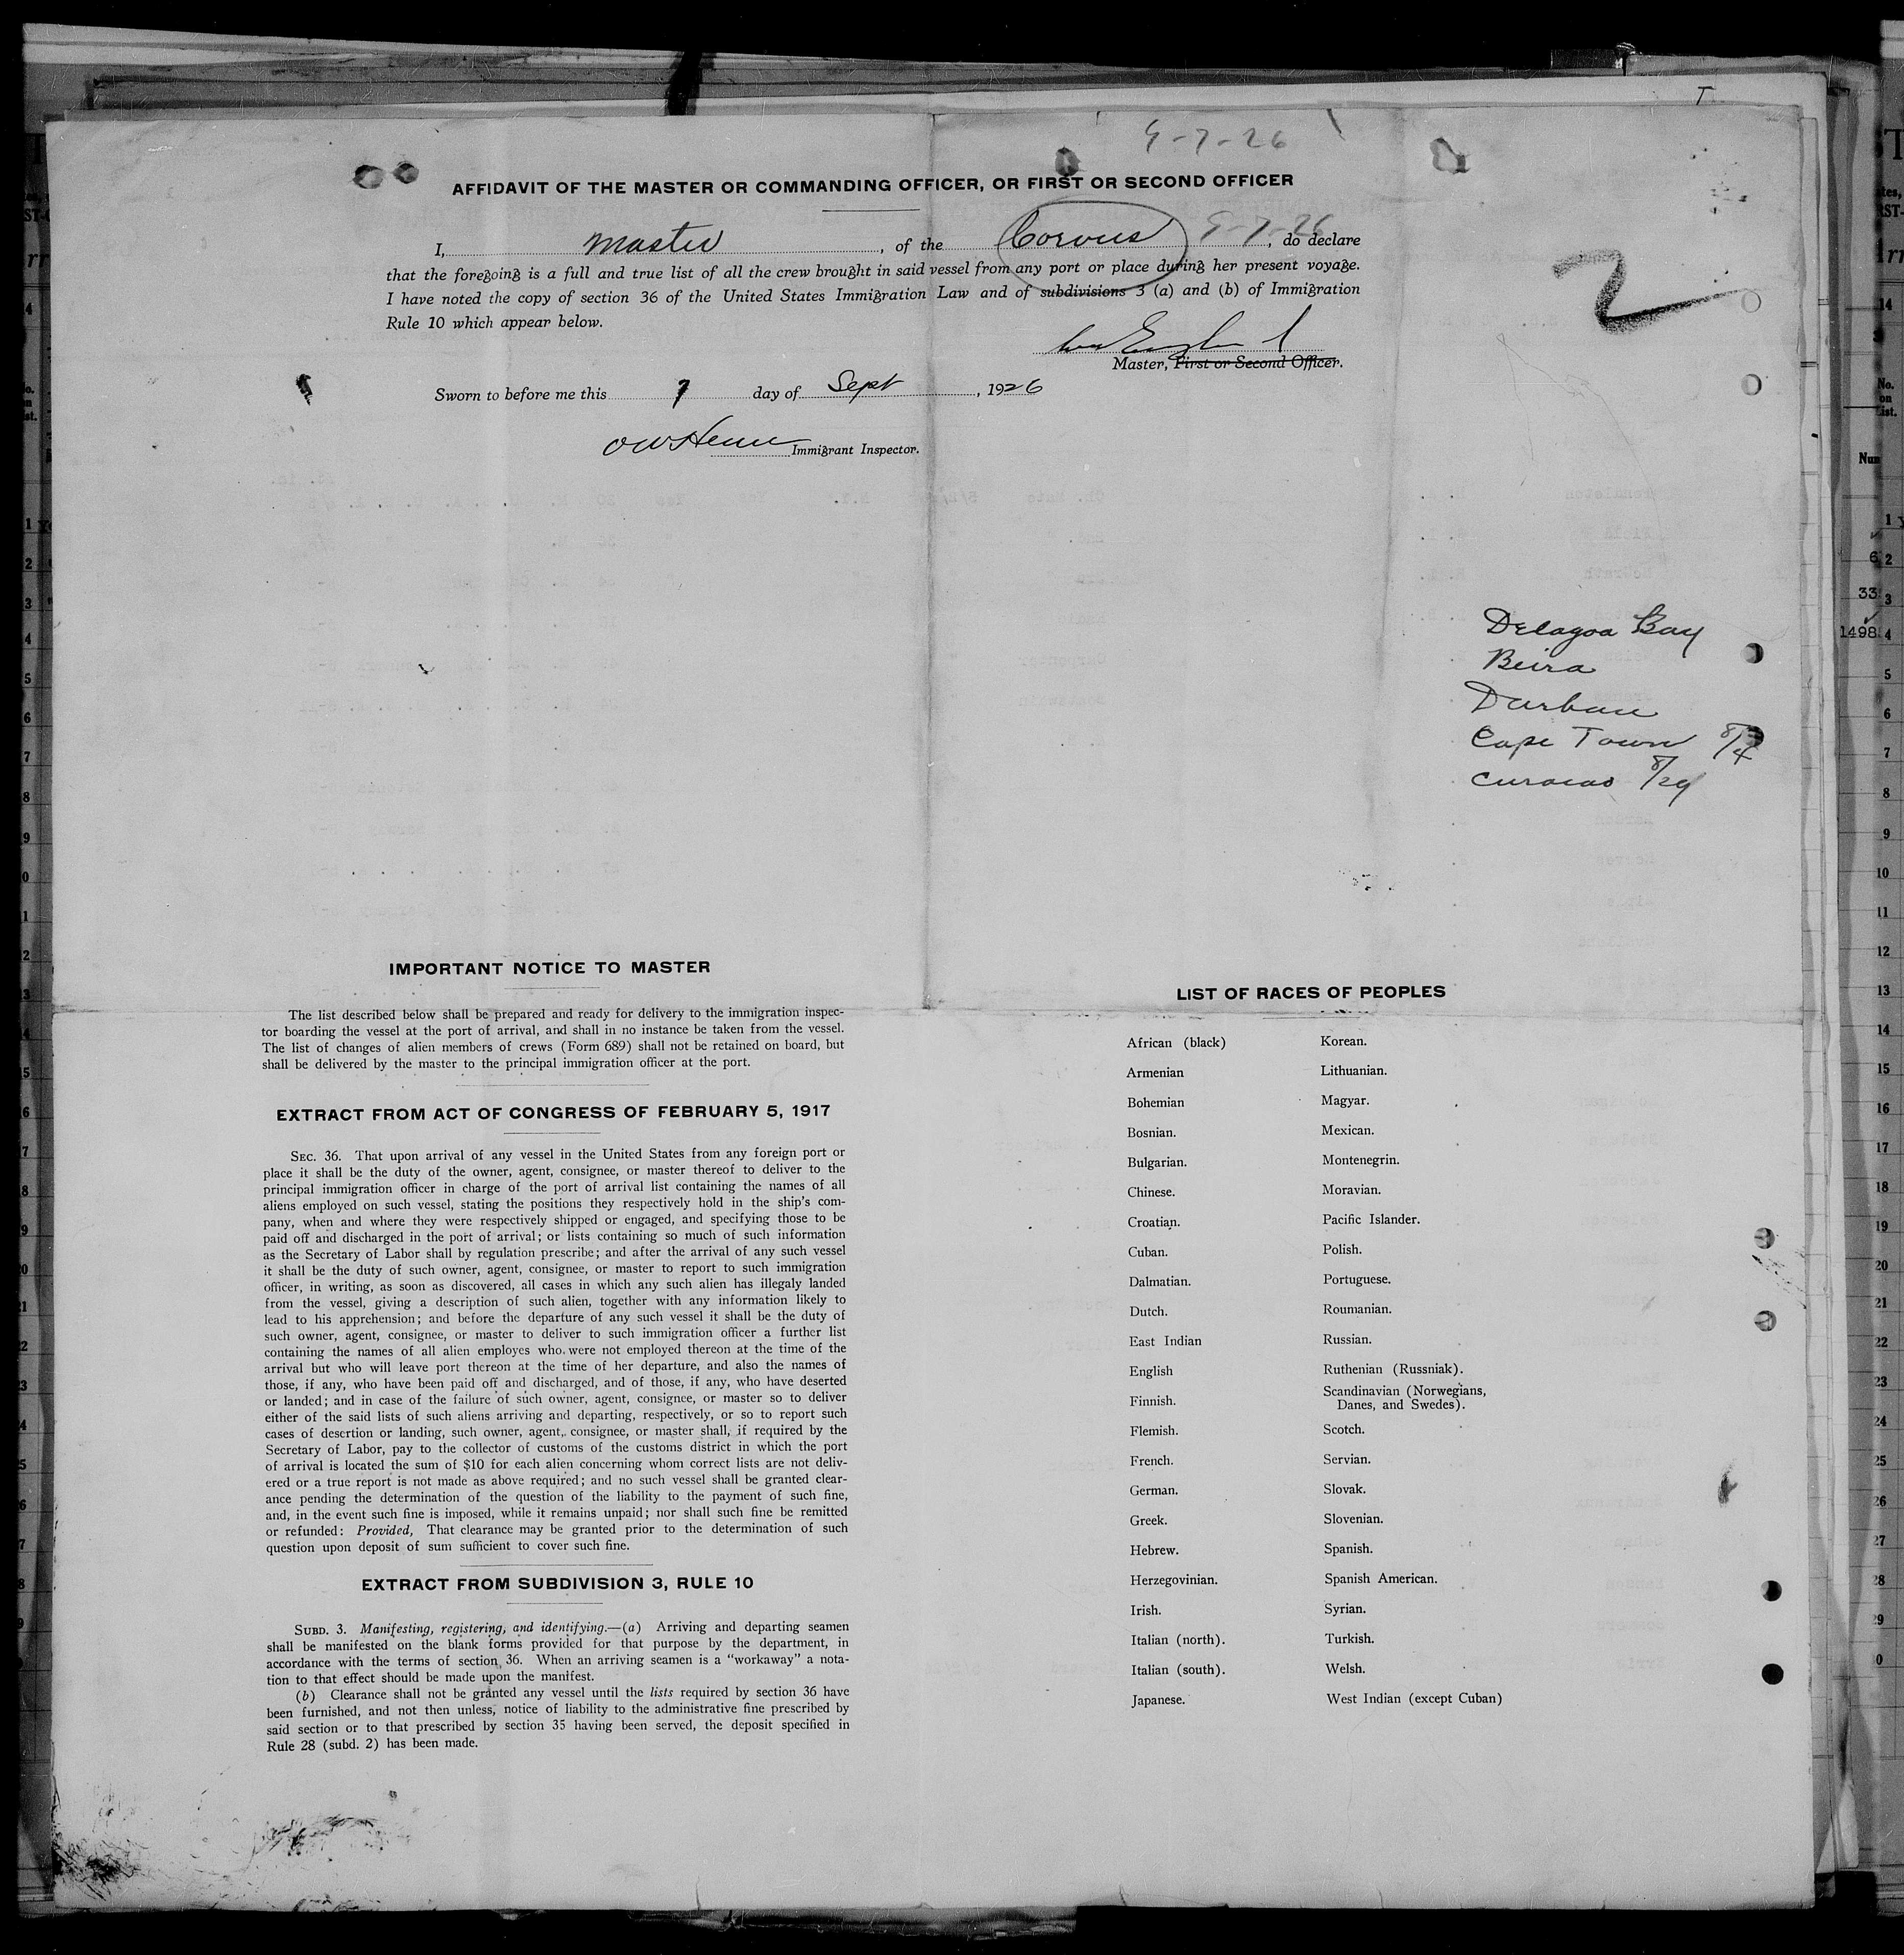 T
9-7-26
AFFIDAVIT OF THE MASTER OR COMMANDING OFFICER, OR FIRST OR SECOND OFFICER
I, Master, of the Corvus 9-7-26, do declare
that the foregoing is a full and true list of all the crew brought in said vessel from any port or place during her present voyage.
I have noted the copy of section 36 of the United States Immigration Law and of subdivisions 3 (a) and (b) of Immigration
Rule 10 which appear below.
2
Master, First or Second Officer.
Sworn to before me this 7 day of Sept, 1926
Immigrant Inspector.
Delagoa Bay
Beira
Durban
Cape Town 8/4
Curacao 8/29
IMPORTANT NOTICE TO MASTER
The list described below shall be prepared and ready for delivery to the immigration inspec-
tor boarding the vessel at the port of arrival, and shall in no instance be taken from the vessel.
The list of changes of alien members of crews (Form 689) shall not be retained on board, but
shall be delivered by the master to the principal immigration officer at the port.
EXTRACT FROM ACT OF CONGRESS OF FEBRUARY 5, 1917
SEC. 36. That upon arrival of any vessel in the United States from any foreign port or
place it shall be the duty of the owner, agent, consignee, or master thereof to deliver to the
principal immigration officer in charge of the port of arrival list containing the names of all
aliens employed on such vessel, stating the positions they respectively hold in the ship's com-
pany, when and where they were respectively shipped or engaged, and specifying those to be
paid off and discharged in the port of arrival; or lists containing so much of such information
as the Secretary of Labor shall by regulation prescribe; and after the arrival of any such vessel
it shall be the duty of such owner, agent, consignee, or master to report to such immigration
officer, in writing, as soon as discovered, all cases in which any such alien has illegally landed
from the vessel, giving a description of such alien, together with any information likely to
lead to his apprehension; and before the departure of any such vessel it shall be the duty of
such owner, agent, consignee, or master to deliver to such immigration officer a further list
containing the names of all alien employes who were not employed thereon at the time of the
arrival but who will leave port thereon at the time of her departure, and also the names of
those, if any, who have been paid off and discharged, and of those, if any, who have deserted
or landed; and in case of the failure of such owner, agent, consignee, or master so to deliver
either of the said lists of such aliens arriving and departing, respectively, or so to report such
cases of desertion or landing, such owner, agent, consignee, or master shall, if required by the
Secretary of Labor, pay to the collector of customs of the customs district in which the port
of arrival is located the sum of $10 for each alien concerning whom correct lists are not deliv-
ered or a true report is not made as above required; and no such vessel shall be granted clear-
ance pending the determination of the question of the liability to the payment of such fine,
and, in the event such fine is imposed, while it remains unpaid; nor shall such fine be remitted
or refunded: Provided, That clearance may be granted prior to the determination of such
question upon deposit of sum sufficient to cover such fine.
EXTRACT FROM SUBDIVISION 3, RULE 10
SUBD. 3. Manifesting, registering, and identifying.—(a) Arriving and departing seamen
shall be manifested on the blank forms provided for that purpose by the department, in
accordance with the terms of section 36. When an arriving seamen is a “workaway” a nota-
tion to that effect should be made upon the manifest.
(b) Clearance shall not be granted any vessel until the lists required by section 36 have
been furnished, and not then unless, notice of liability to the administrative fine prescribed by
said section or to that prescribed by section 35 having been served, the deposit specified in
Rule 28 (subd. 2) has been made.
LIST OF RACES OF PEOPLES
African (black)
Armenian
Bohemian
Bosnian.
Bulgarian.
Chinese.
Croatian.
Cuban.
Dalmatian.
Dutch.
East Indian
English
Finnish.
Flemish.
French.
German.
Greek.
Hebrew.
Herzegovinian.
Irish.
Italian (north).
Italian (south).
Japanese.
Korean.
Lithuanian.
Magyar.
Mexican.
Montenegrin.
Moravian.
Pacific Islander.
Polish.
Portuguese.
Roumanian.
Russian.
Ruthenian (Russniak).
Scandinavian (Norwegians,
Danes, and Swedes).
Scotch.
Servian.
Slovak.
Slovenian.
Spanish.
Spanish American.
Syrian.
Turkish.
Welsh.
West Indian (except Cuban)